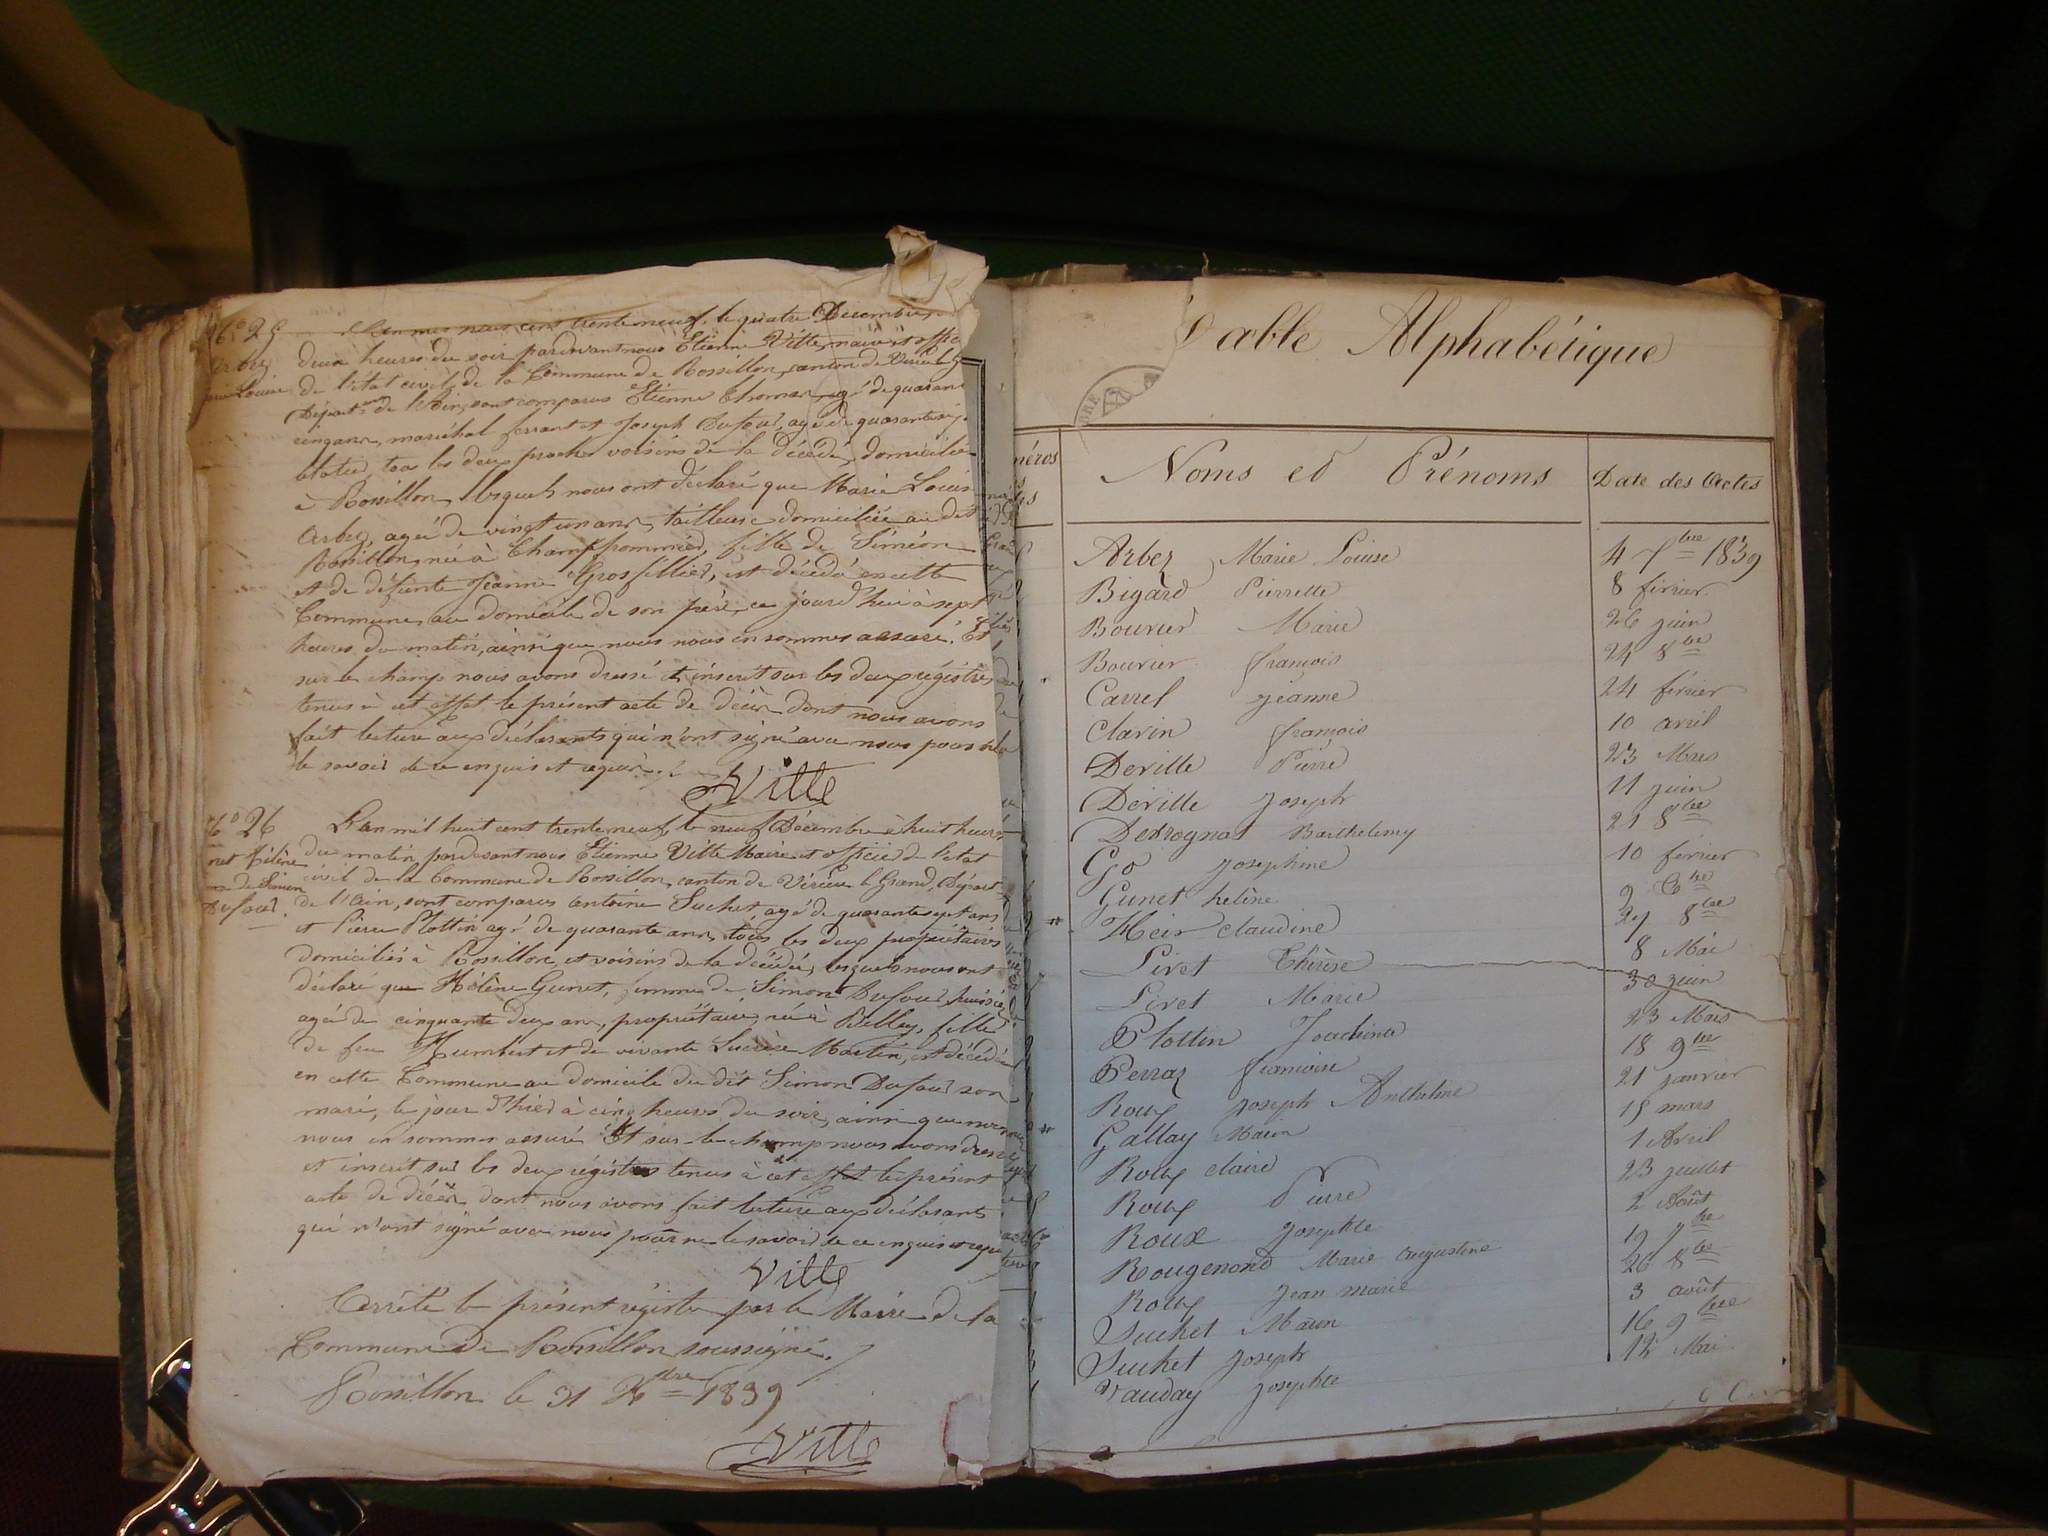 N° 25
Arbez
Marie Louise
L'an mil huit cent trente neuf, le quatre Décembre
deux heures du soir pardevant nous Etienne Ville, maire et offic
de l'état civil de la Commune de Rossillon, canton de Virieu le G
Départ. de l'Ain, sont comparus Etienne Thomas, agé de quarante
cinq ans, maréchal ferrant et Joseph Dufour, agé de quarante
tous les deux proches voisins de la décédée, domiciliés
à Rossillon, lesquels nous ont déclaré que Marie Louise
Arbez, agée de vingt un ans, tailleuse domiciliée au dit
Rossillon, née à Champfrommier, fille de Siméon
et de défunte Jeanne Grosfillier, est décédée en cette
Commune au domicile de son père, ce jourd'hui à sept
heures du matin, ainsi que nous nous en sommes assuré. Et
sur le champ nous avons dressé et inscrit sur les deux régistres
tenus à cet effet le présent acte de décès dont nous avons
fait lecture aux déclarants qui n'ont signé avec nous pour ne
le savoir de ce enquis et requis.
Ville
N° 26
net Hélène
de Simon
Dufour.
L'an mil huit cent trente neuf, le neuf Décembre à huit heures
du matin, pardevant nous Etienne Ville Maire et officier de l'état
civil de la Commune de Rossillon, canton de Virieu le Grand, Départ.
de l'Ain, sont comparus antoine Suchet agé de quarante sept ans
et Pierre Plottin agé de quarante ans, tous les deux propriétaires
domiciliés à Rossillon, et voisins de la décédée, lesquels nous ont
déclaré que Hélène Gunet, femme de Simon Dufour
agée de cinquante deux ans, propriétaire, née à Belley, fille
de feu Humbert et de vivante Lucrèce Martin, est décédée
en cette Commune au domicile du dit Simon Dufour son
mari, le jour d'hier à cinq heures du soir, ainsi que nous
nous en sommes assuré. Et sur le champ nous avons dressé
et inscrit sur les deux régistres tenus à cet effet le présent
acte de décès dont nous avons fait lecture aux déclarants
qui n'ont signé avec nous pour ne le savoir de ce enquis et requis
Ville
Arrêté le présent régistre par le Maire de la
Commune de Rossillon soussigné.
Rossillon le 31 Xbre 1839
Ville
Table Alphabétique
Noms et Prénoms Date des Actes
Arbez Marie Louise 4 Xbre 1839
Bigard Pierrette 8 février
Bouvier Marie 26 juin
Bouvier françois 24 8bre
Carrel jeanne 24 février
Clavin françois 10 avril
Deville Pierre 23 Mars
Deville Joseph 11 juin
Desrognat Barthelemy 21 8bre
Go Josephine 10 février
Gunet helène 9 Xbre
Heir claudine 27 8bre
Livet Thérèse 8 Mai
Livet Marie 30 juin
Plottin Joachim 23 Mars
Perraz françoise 18 9bre
Roux Joseph Anthelme 21 janvier
Gallay Marin 15 mars
Roux claire 1 Avril
Roux Pierre 23 juillet
Roux Josephte 2 Août
Rougemond Marie augustine 19 7bre
Roux Jean marie 26 8bre
Suchet Marin 3 août
Suchet Joseph 16 9bre
Vauday Josephte 12 Mai